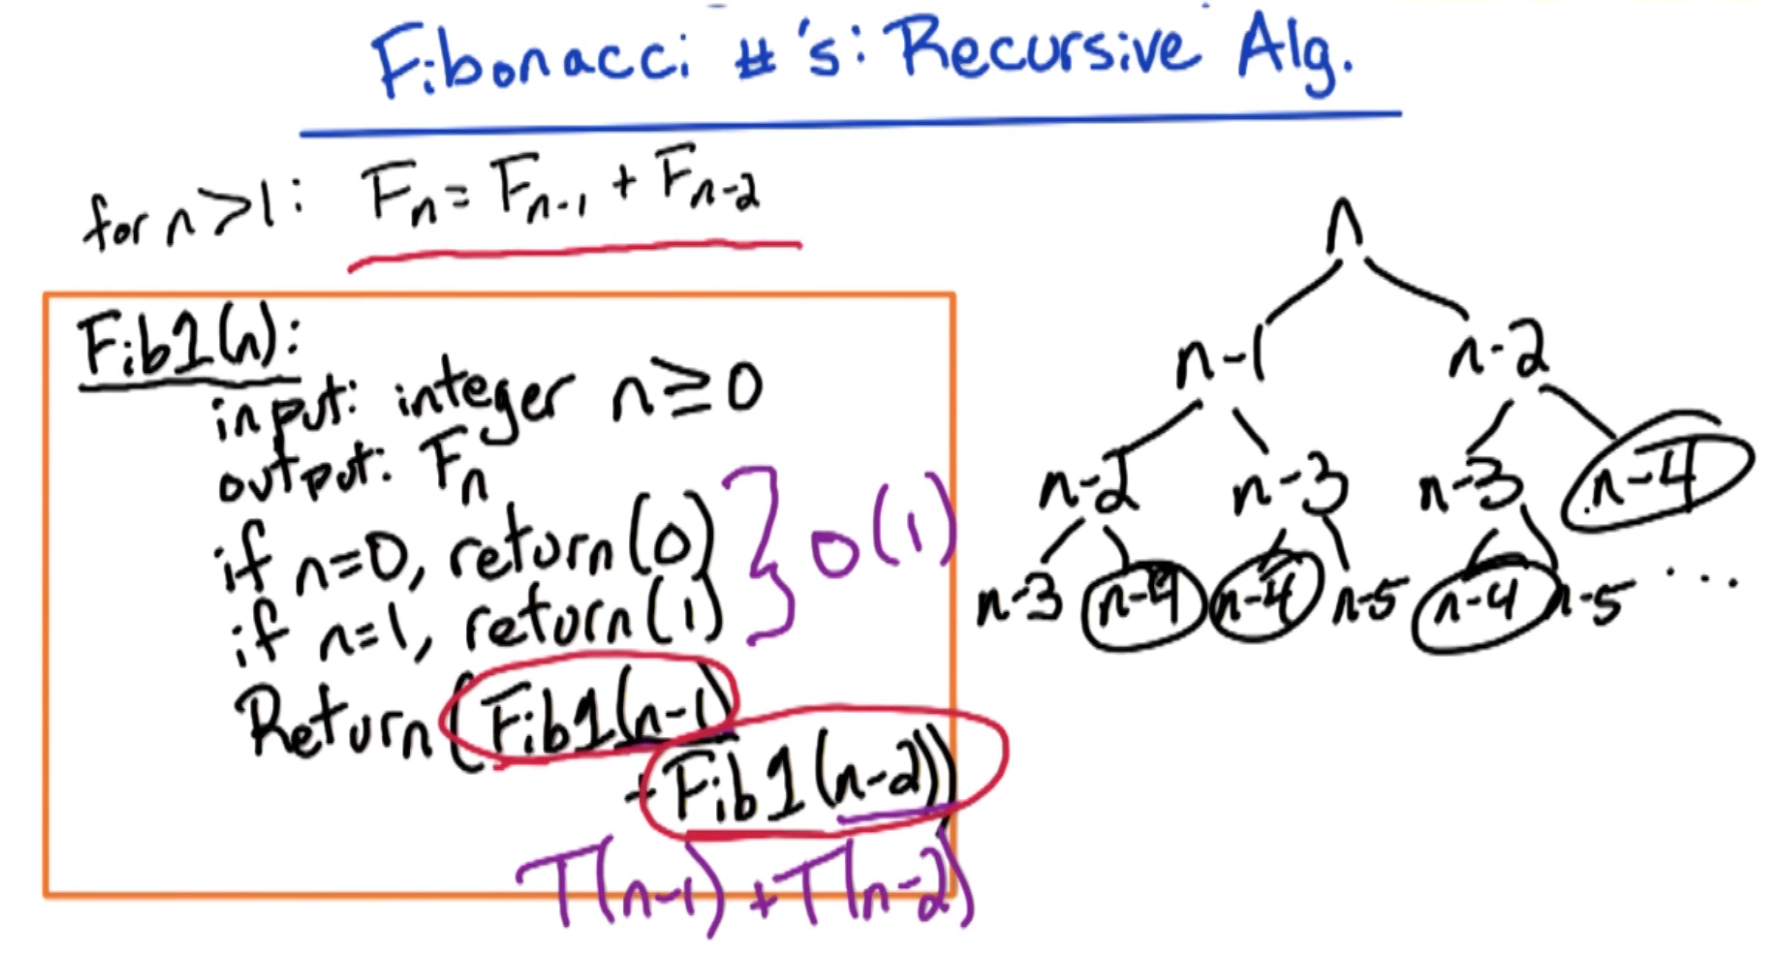 Fibonacci #'s: Recursive Alg.
for n>1: Fn = Fn-1 + Fn-2
Fib1(n):
input: integer n≥0
output: Fn
if n=0, return(0)
if n=1, return(1)
} O(1)
Return(Fib1(n-1)
+Fib1(n-2))
T(n-1)+T(n-2)
n
n-1 n-2
n-2 n-3 n-3 n-4
n-3 n-4 n-4 n-5 n-4 n-5 ...